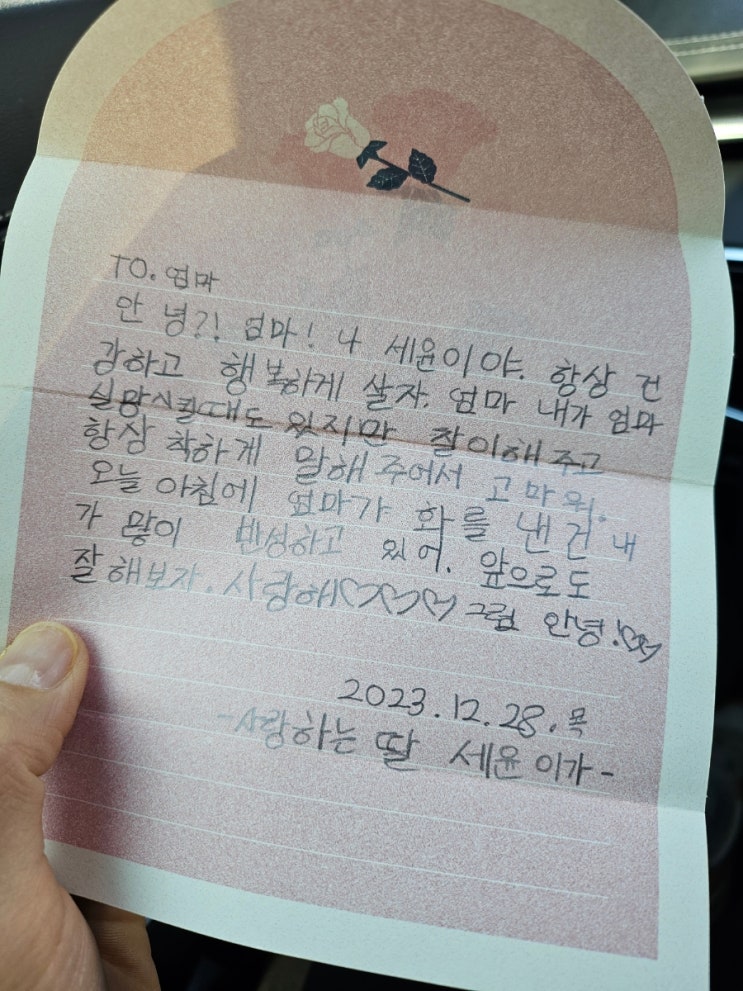 TO. 엄마
안녕?! 엄마! 나 세윤이야. 항상 건
강하고 행복하게 살자. 엄마 내가 엄마
실망시킬때도 있지만 잘이해 주고
항상 착하게 말해 주어서 고마워.
오늘 아침에 엄마가 화를 낸건 내
가 많이 반성하고 있어. 앞으로도
잘해보자. 사랑해♡♡♡♡ 그럼 안녕!♡♡
2023.12.28.목
-사랑하는 딸 세윤이가-